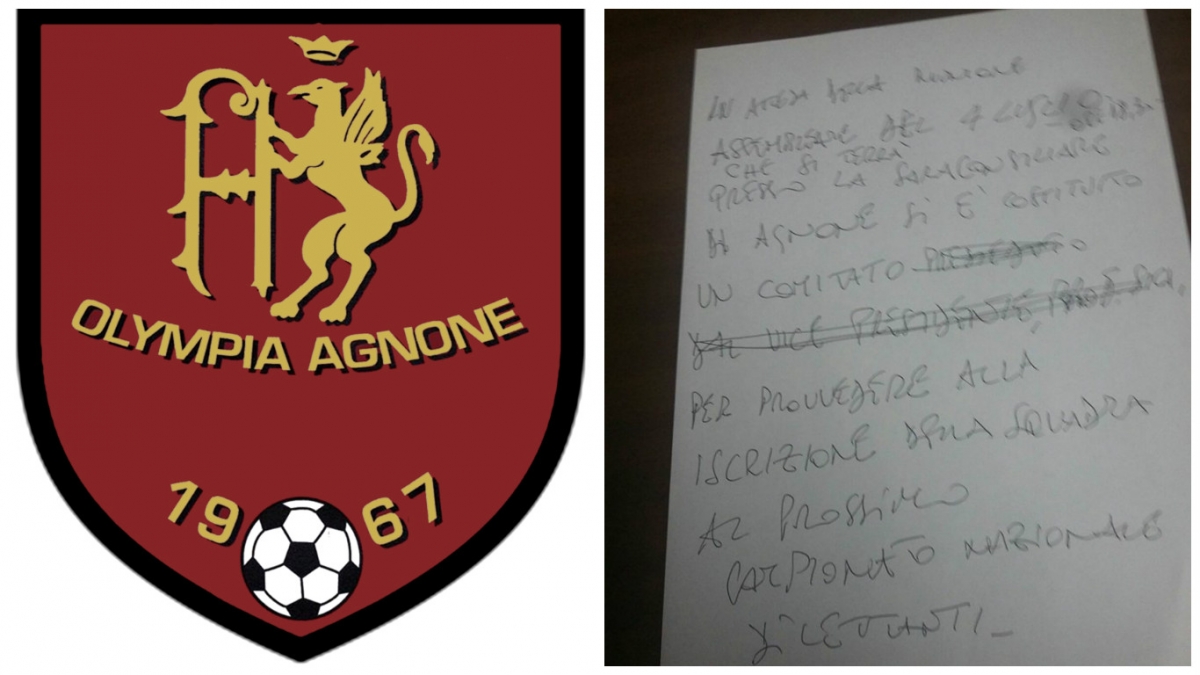 OLYMPIA AGNONE
1967
IN ATTESA DELLA RIUNIONE
ASSEMBLEARE DEL 4 LUGLIO
CHE SI TERRÀ
PRESSO LA SALA CONSILIARE
DI AGNONE SI È COSTITUITO
UN COMITATO
VICE PRESIDENTE
PER PROVVEDERE ALLA
ISCRIZIONE DELLA SQUADRA
AL PROSSIMO
CAMPIONATO NAZIONALE
DILETTANTI